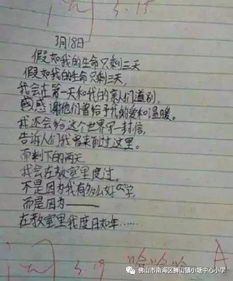 3.15
3月18日
假如我的生命只剩三天
假如我的生命只剩三天
我会在第一天和我的亲人们道别,
感谢他们曾给予我的爱和温暖。
我还会给这个世界写一封信,
告诉人们我曾来到过这里。
而剩下的两天
我会在教室里度过,
不是因为我有多么好学
而是因为——
在教室里我度日如年……
3.19 哈哈哈 A
佛山市南海区狮山镇小塘中心小学